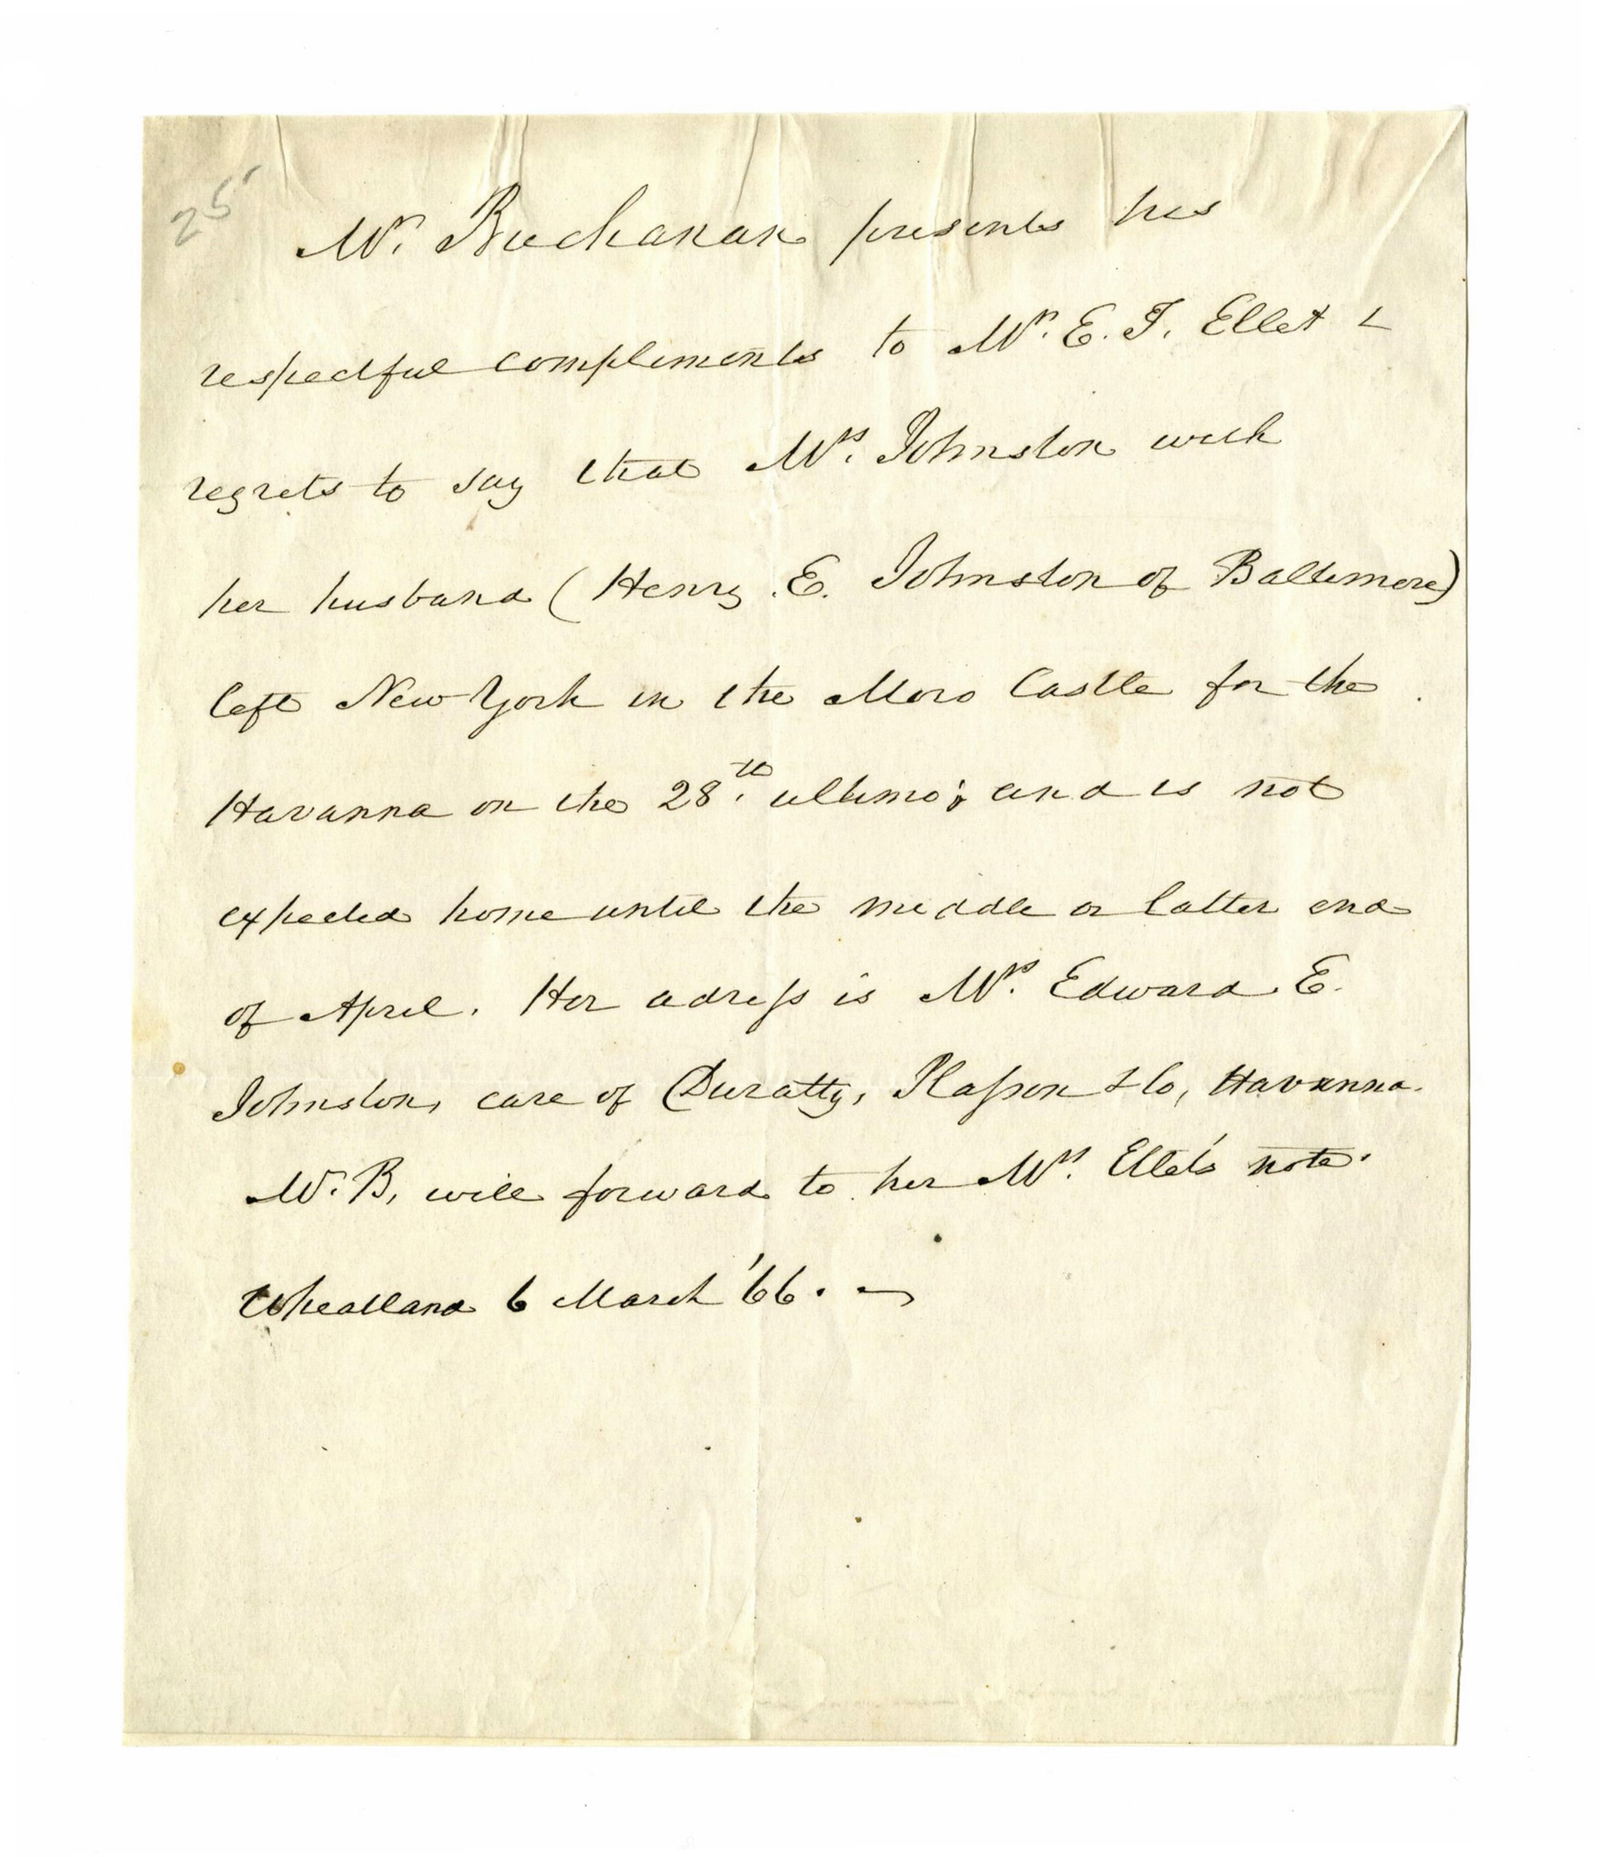 25
Mr. Buchanan presents his
respectful compliments to Mrs. E. F. Ellet &
regrets to say that Mrs. Johnston with
her husband (Henry E. Johnston of Baltimore)
left New York in the Moro Castle for the
Havanna on the 28th. ultimo; and is not
expected home until the middle or latter end
of April. Her adress is Mrs. Edward E.
Johnston, care of Duratty, & Co, Havanna.
Mr. B. will forward to her Mrs. Ellet's note.
Wheatland 6 March '66.